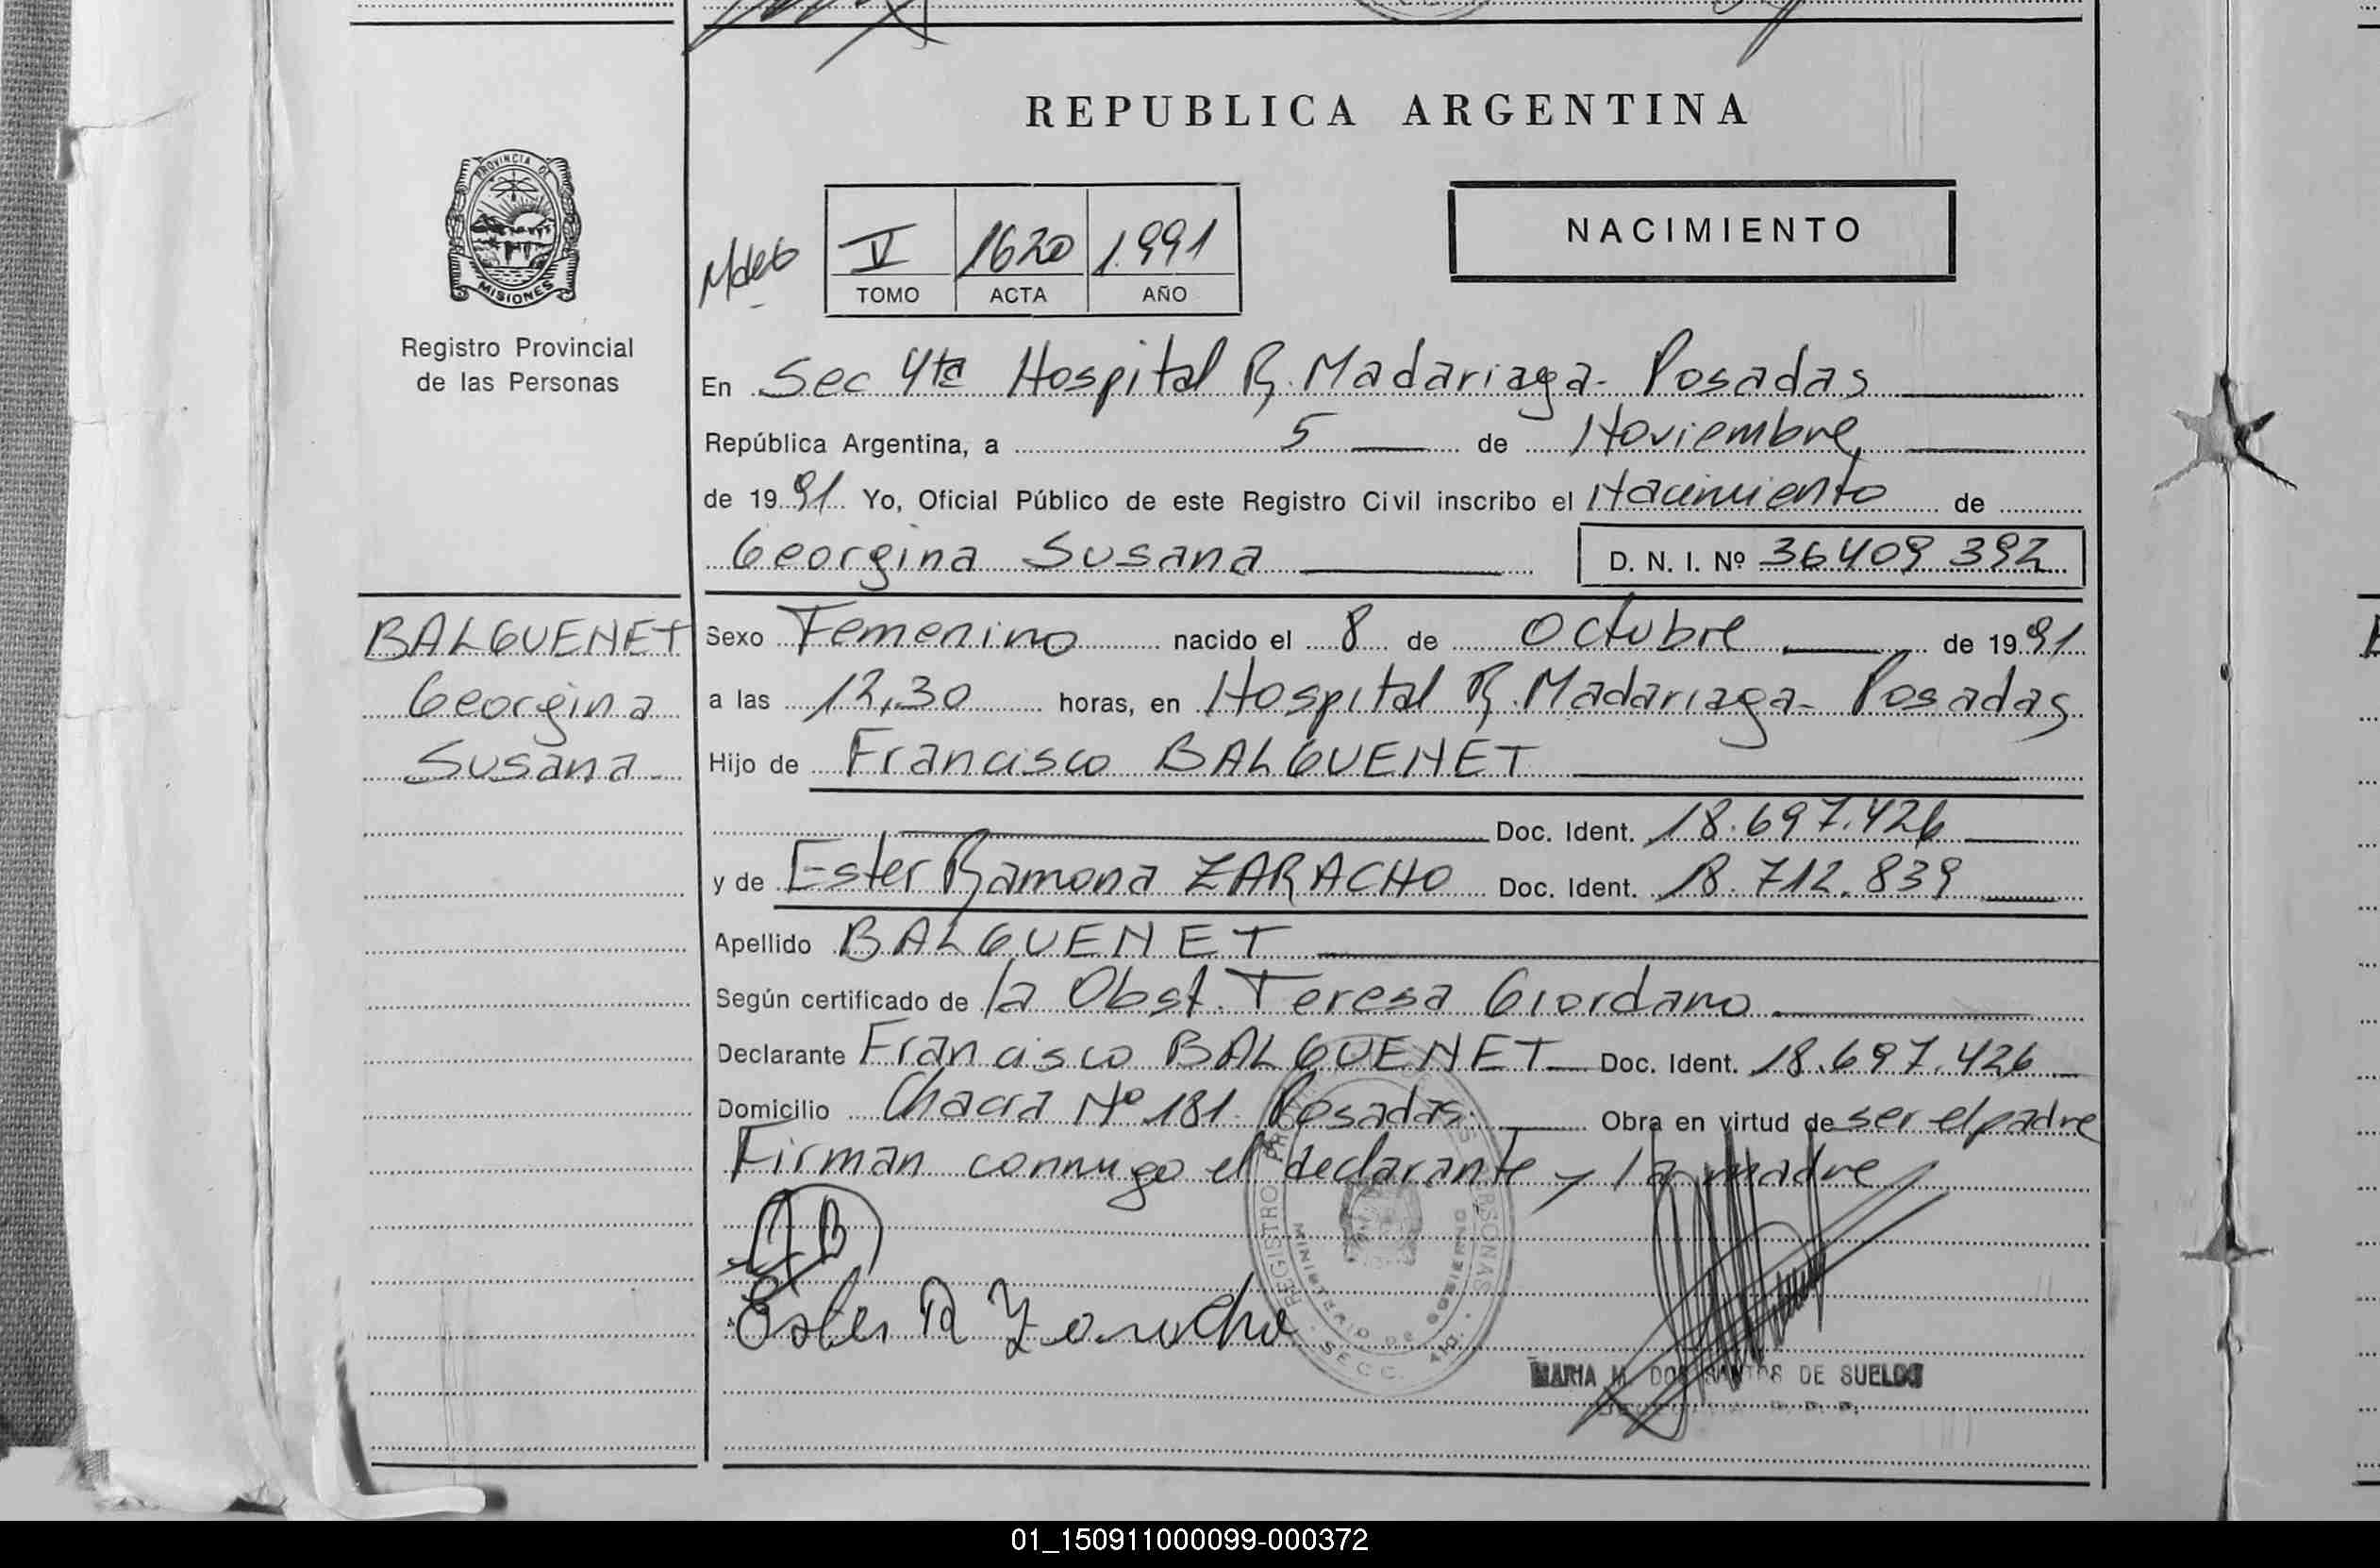 REPUBLICA ARGENTINA
PROVINCIA DE
MISIONES
Registro Provincial
de las Personas
V 1620 1.991
TOMO ACTA AÑO
NACIMIENTO
En Sec 4ta Hospital R. Madariaga - Posadas
República Argentina, a 5 de Noviembre
de 1991 Yo, Oficial Público de este Registro Civil inscribo el Nacimiento de
Georgina Susana D. N. I. Nº 36409392
BALGUENET
Georgina
Susana
Sexo Femenino nacido el 8 de Octubre de 1991
a las 12,30 horas, en Hospital R. Madariaga - Posadas
Hijo de Francisco BALGUENET
Doc. Ident. 18.697.426
y de Ester Ramona ZARACHO Doc. Ident. 18.712.839
Apellido BALGUENET
Según certificado de la Obst. Teresa Giordano
Declarante Francisco BALGUENET Doc. Ident. 18.697.426
Domicilio Chacra Nº 181 Posadas Obra en virtud de ser el padre
Firman conmigo el declarante y la madre
Ester R Zaracho
REGISTRO PERSONAS
MINISTERIO DE GOBIERNO
SECC. 4ta.
MARIA M. DOS SANTOS DE SUELDO
01_150911000099-000372